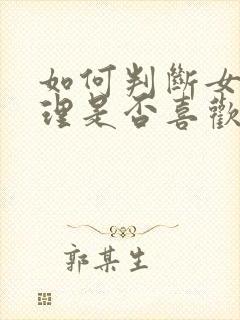 如何判斷女
理是否喜歡
郭某生